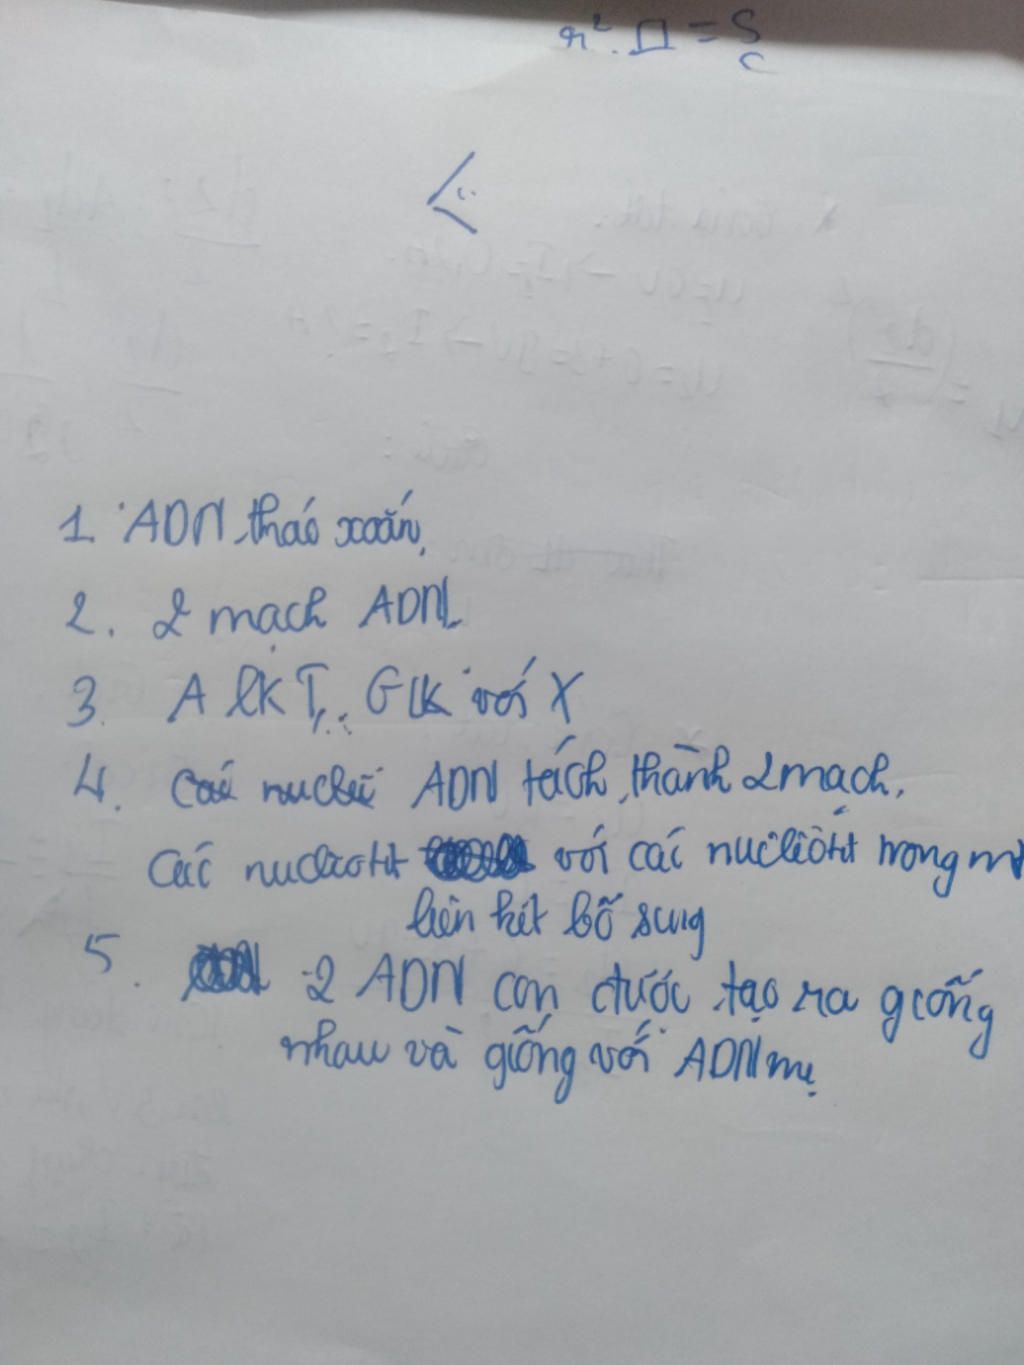 r². □ = S
C
1. ADN tháo xoắn
2. 2 mạch ADN
3. A lk T, G lk với X
4. ADN tách thành 2 mạch.
Các nucliotit với các nucliôtit trong m
liên kết bổ sung
5. 2 ADN con được tạo ra giống
nhau và giống với ADN mẹ